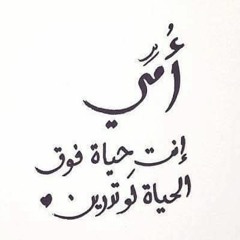 أُمّي
إنتِ حِياة فوق
الحياة لو تدرين ♥